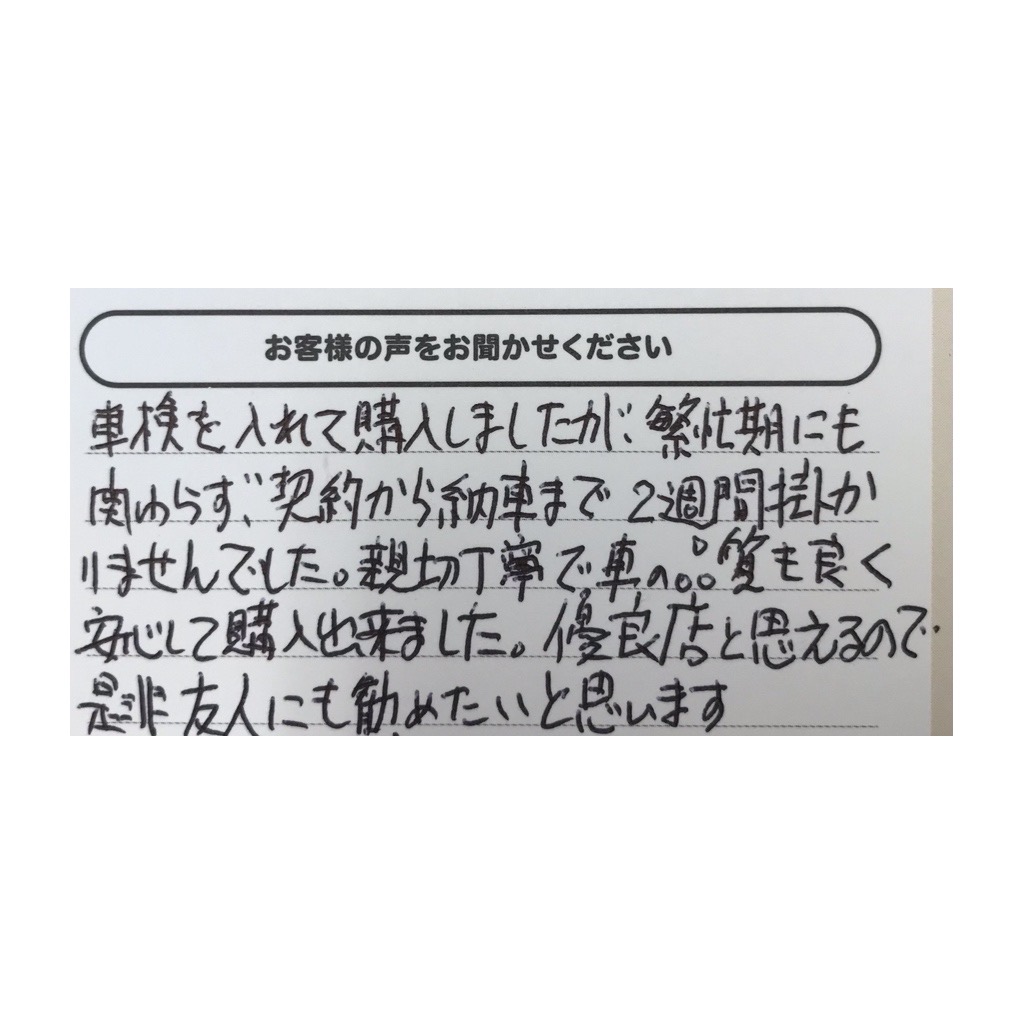 お客様の声をお聞かせください
車検を入れて購入しましたが、繁忙期にも
関わらず、契約から納車まで2週間掛か
りませんでした。親切丁寧で車の品質も良く
安心して購入出来ました。優良店と思えるので
是非友人にも勧めたいと思います